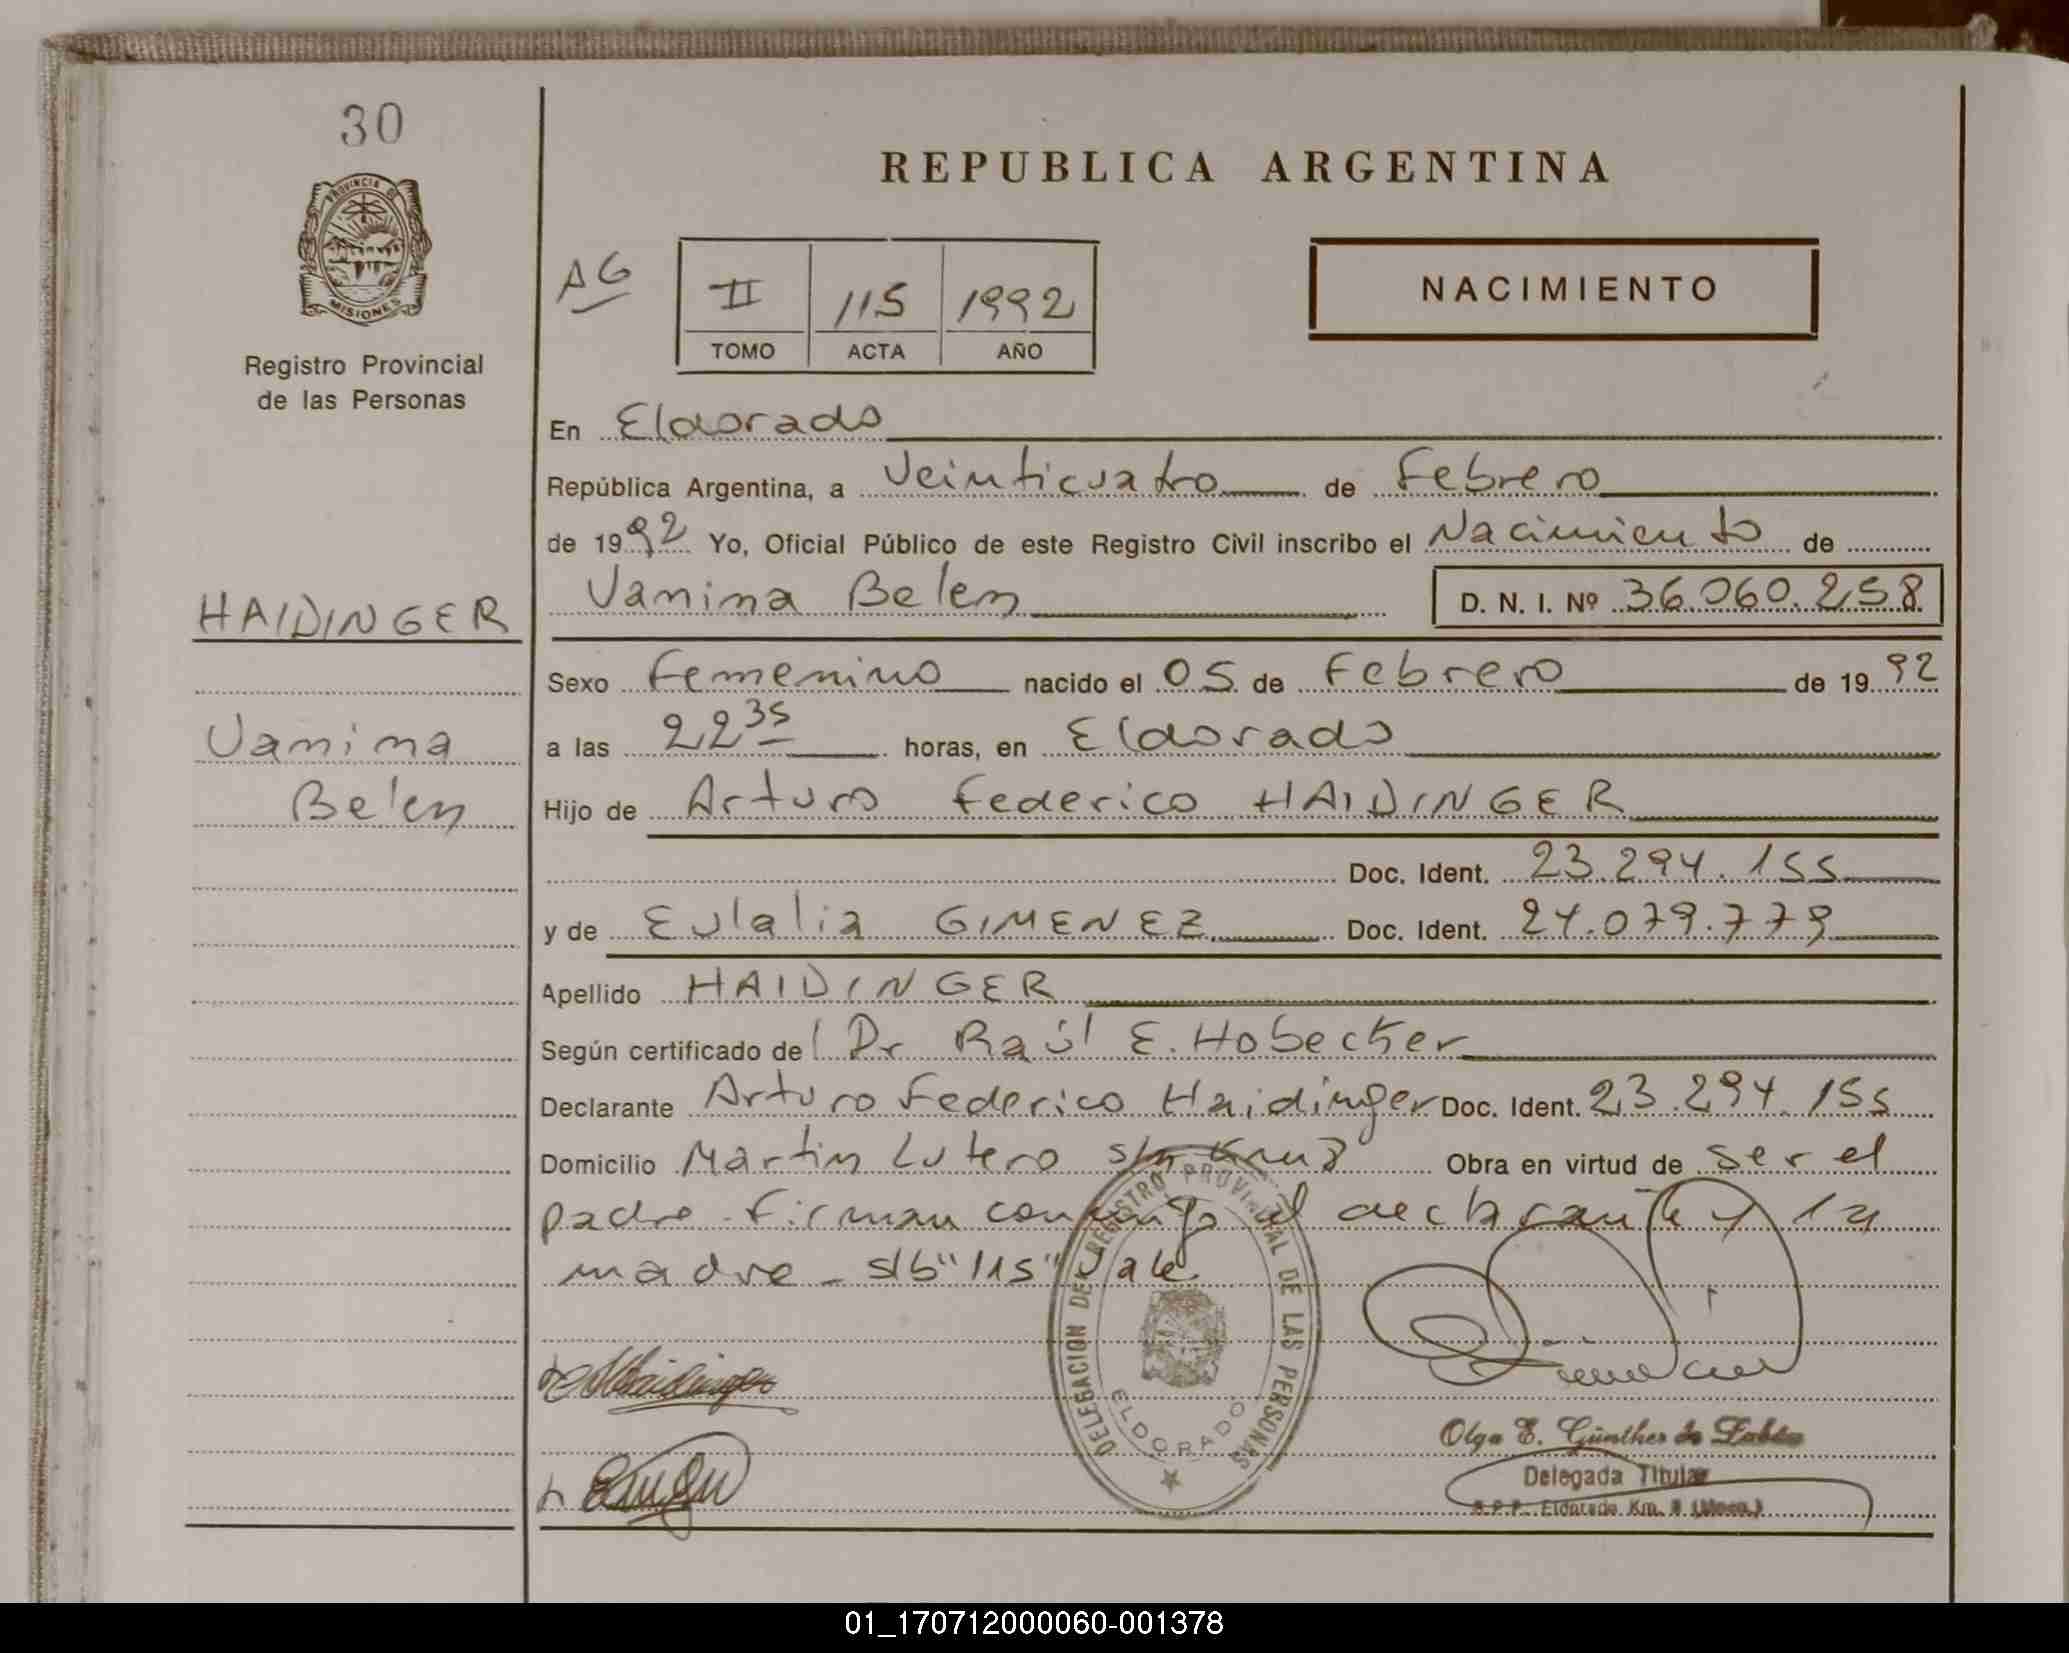 30
PROVINCIA DE
MISIONES
Registro Provincial
de las Personas
REPUBLICA ARGENTINA
AG
II 115 1992
TOMO ACTA AÑO
NACIMIENTO
En Eldorado
República Argentina, a Veinticuatro de Febrero
de 1992 Yo, Oficial Público de este Registro Civil inscribo el Nacimiento de
HAIDINGER
Vanina Belen D. N. I. Nº 36.060.258
Sexo Femenino nacido el 05 de Febrero de 1992
Vanina
a las 22 35 horas, en Eldorado
Belen
Hijo de Arturo Federico HAIDINGER
Doc. Ident. 23.294.155
y de Eulalia GIMENEZ Doc. Ident. 24.079.779
Apellido HAIDINGER
Según certificado del Dr Raúl E. Hobecker
Declarante Arturo Federico Haidinger Doc. Ident. 23.294.155
Domicilio Martin Lutero s/n Obra en virtud de ser el
padre - Firman conmigo el declarante y la
madre - s/b "115" Vale
DELEGACION DEL REGISTRO PROVINCIAL DE LAS PERSONAS
ELDORADO
Haidinger
Olga E. Günther de
Delegada Titular
Eldorado Km.
01_170712000060-001378